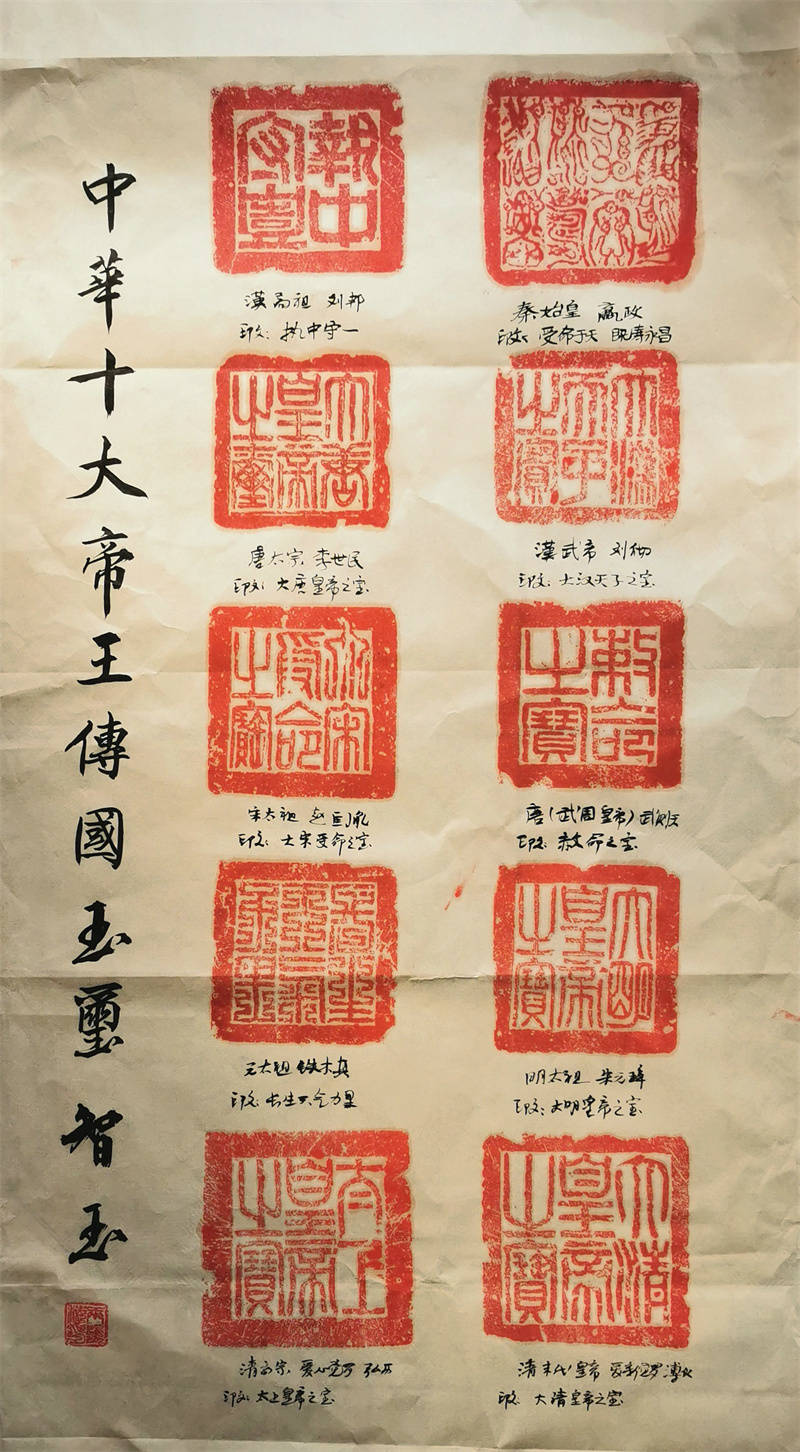 中華十大帝王傳國玉璽 智玉
執中守壹
漢高祖 刘邦
印文：执中守一
秦始皇 嬴政
印文：受命于天 既寿永昌
皇帝之璽
唐太宗 李世民
印文：大唐皇帝之宝
大漢天子之寶
漢武帝 刘彻
印文：大汉天子之宝
大宋受命之寶
宋太祖 赵匡胤
印文：大宋受命之宝
敕命之寶
唐(武周皇帝)武则天
印文：敕命之宝
元太祖 铁木真
印文：长生天气力里
大明皇帝之寶
明太祖 朱元璋
印文：大明皇帝之宝
太上皇帝之寶
清高宗 爱心觉罗 弘历
印文：太上皇帝之宝
大清皇帝之寶
清末代皇帝 爱新觉罗 溥仪
印文：大清皇帝之宝